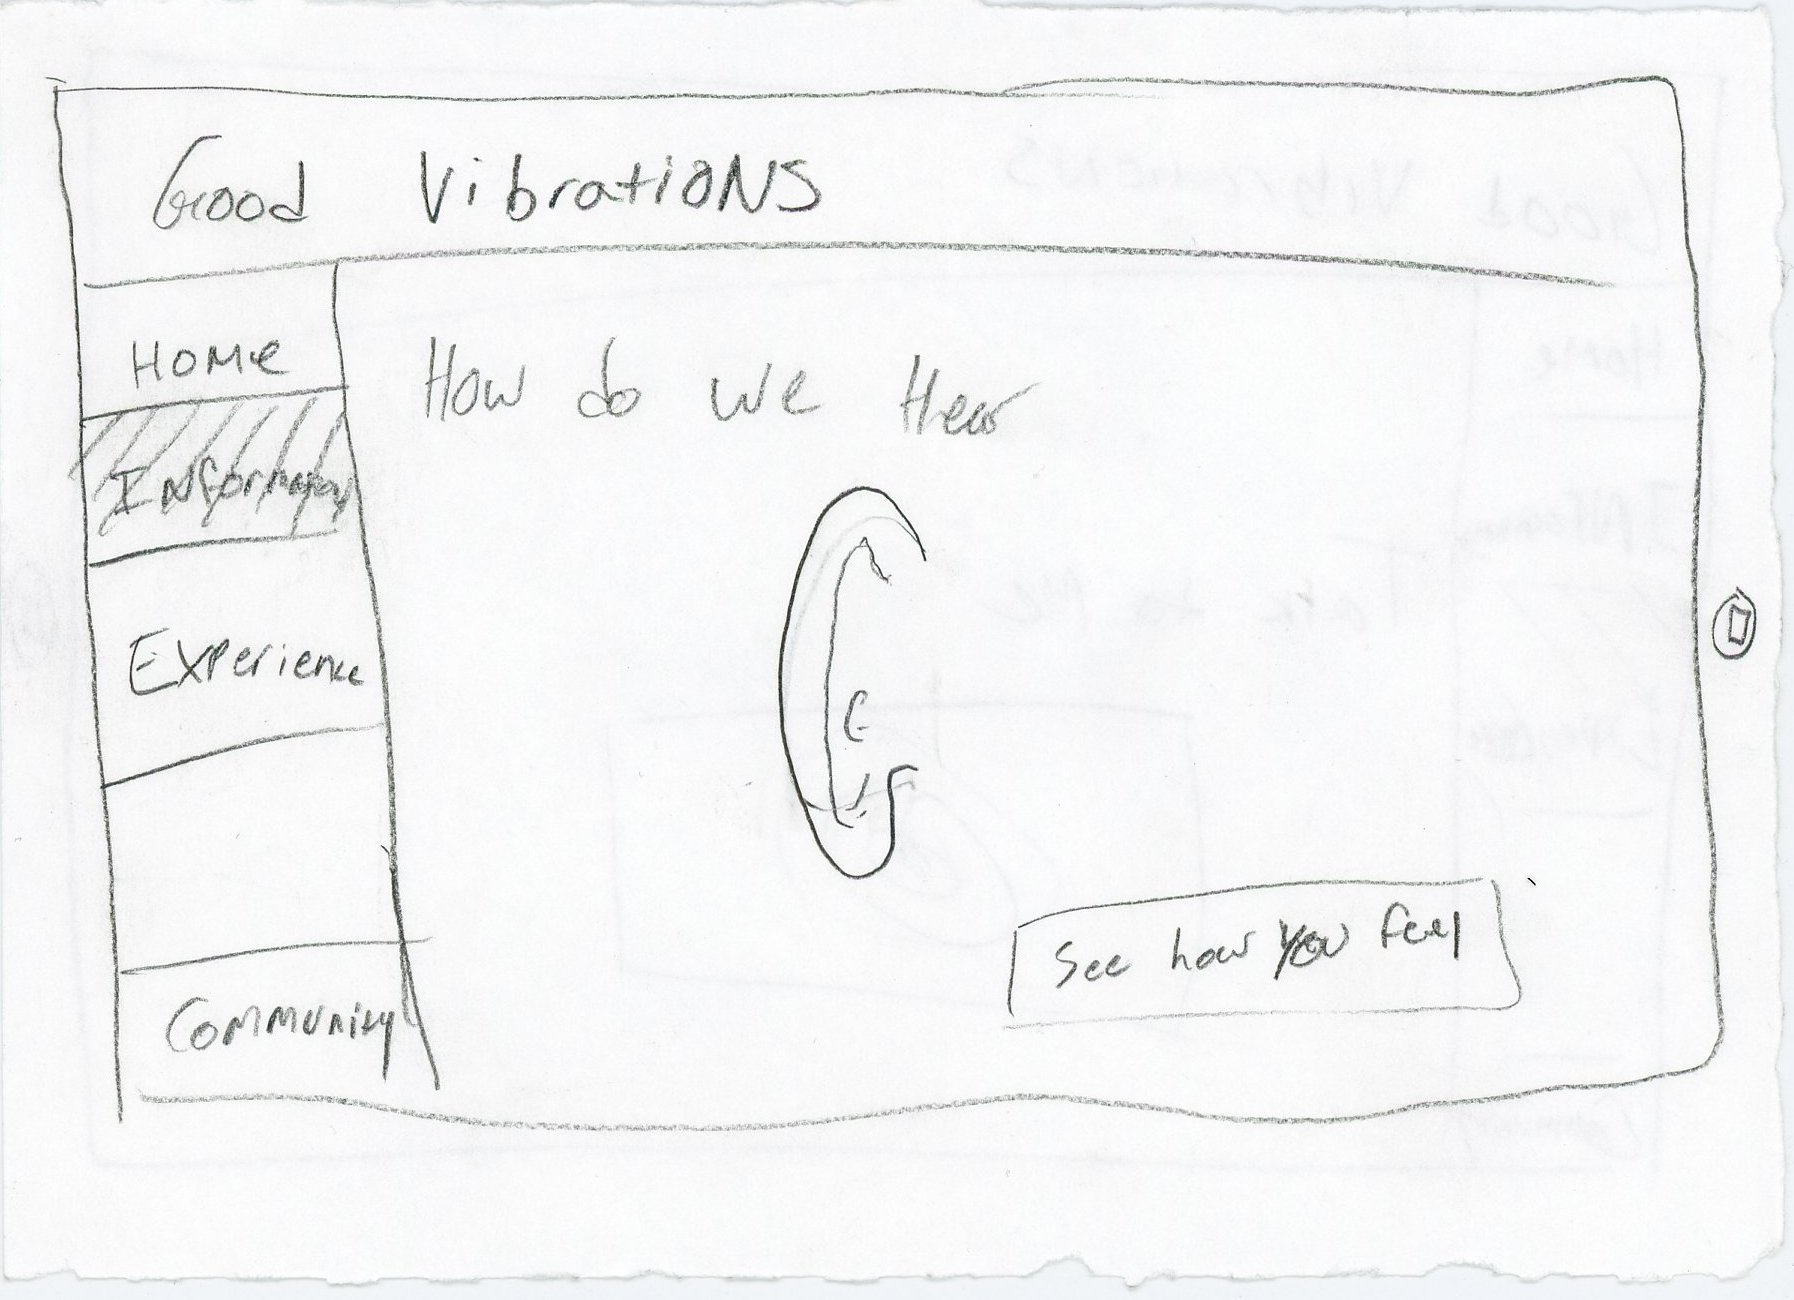 Good VibratioNS
Home
Information
Experience
Community
How do we Hear
See how you feel